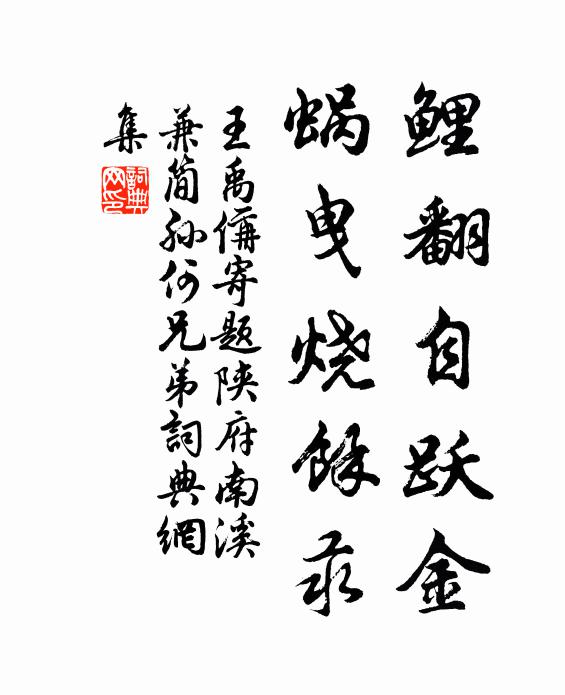 鲤翻自跃金
蜗曳烧馀汞
王禹偁寄题陕府南溪
兼简孙何兄弟詞典網
集
詞典
网印